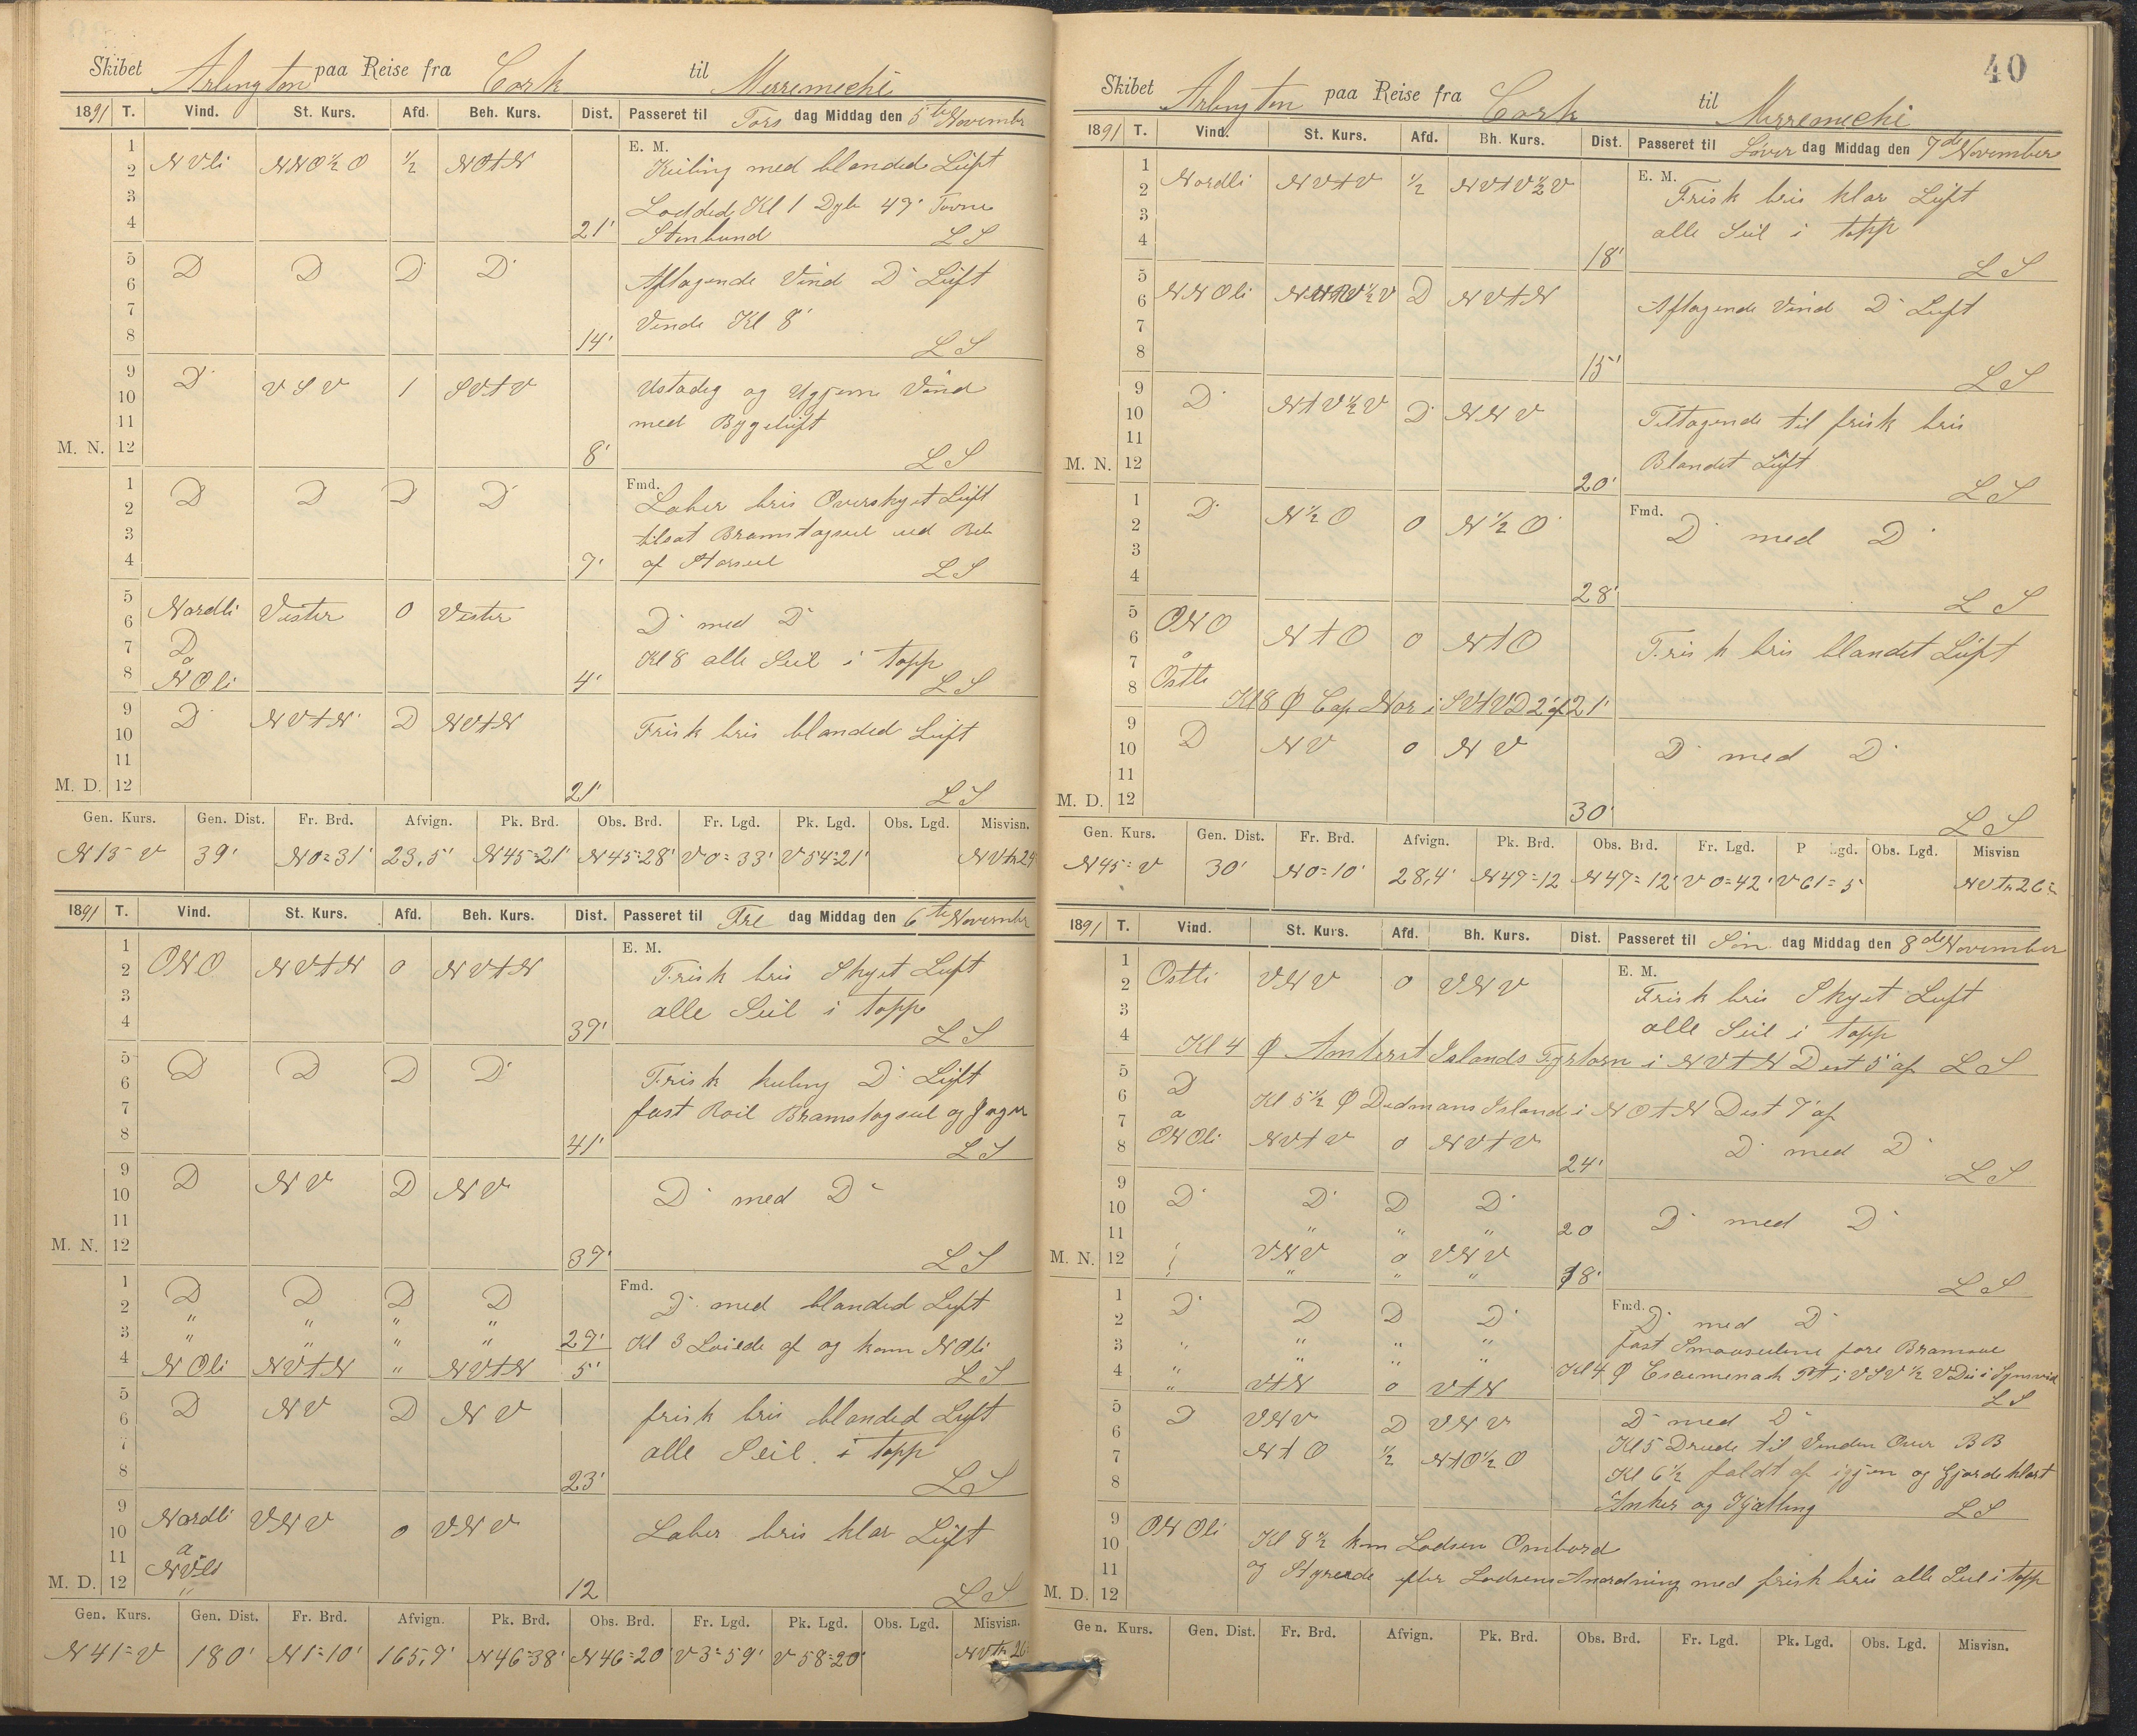 Skibet Arlington paa Reise fra Cork til Merremechi
1891 T. Vind. St. Kurs. Afd. Beh. Kurs. Dist. Passeret til Tors dag Middag den 5te Novembr
E. M.
1
2 NVli NNO½O ½ NOtN Kuling med blanded Luft
3 Loddede Kl 1 Dybe 49' Favne
4 21' Stenbund LS
5 D D D D Aftagende Vind D Luft
6
7 Vende Kl 8'
8 14' LS
9 D VSV 1 SVtV Ustadig og Ugjevn Vind
10
11 med Bygeluft
M. N. 12 8' LS
Fmd.
1 D D D D Laber bris Overskyet Luft
2
3 tilsat Bramstagseil
4 7' af Storseil LS
5 Nordli Vester 0 Vester D med D
6
7 D Kl 8 alle Seil i topp
8 a NOli 4' LS
9 D NVtN D NVtN Frisk bris blanded Luft
10
11
M. D. 12 21' LS
Gen. Kurs. Gen. Dist. Fr. Brd. Afvign. Pk. Brd. Obs. Brd. Fr. Lgd. Pk. Lgd. Obs. Lgd. Misvisn.
N 15° V 39' N 0°=31' 23,5' N 45°=21' N 45°=28' V 0°=33' V 54°=21'
1891 T. Vind. St. Kurs. Afd. Beh. Kurs. Dist. Passeret til Fre dag Middag den 6te Novembr
E. M.
1
2 ONO NVtN 0 NVtN Frisk bris Skyet Luft
3 alle Seil i topp
4 39' LS
5 D D D D Frisk kuling D Luft
6
7 fast Roil Bramstagseil og Jager
8 41' LS
9 D NV D NV D med D
10
11
M. N. 12 39' LS
Fmd.
1 D D D D D med blanded Luft
2 " " " "
3 " " " " 29' Kl 3 Loiede af og kom NOli
4 NOli NVtN " NVtN 5' LS
5 D NV D NV frisk bris blanded Luft
6
7 alle Seil i topp
8 23' LS
9 Nordli VNV 0 VNV Laber bris klar Luft
10
11 a NVli
M. D. 12 " 12 LS
Gen. Kurs. Gen. Dist. Fr. Brd. Afvign. Pk. Brd. Obs. Brd. Fr. Lgd. Pk. Lgd. Obs. Lgd. Misvisn.
N 41° V 180' N 1°=10' 165,9' N 46°=38' N 46°=20' V 3°=59' V 58°=20'
40
Skibet Arlington paa Reise fra Cork til Merremechi
1891 T. Vind. St. Kurs. Afd. Bh. Kurs. Dist. Passeret til Løver dag Middag den 7de November
E. M.
1
2 Nordli NVtV ½ NVtV½V Frisk bris klar Luft
3 alle Seil i topp
4 18' LS
5
6 NNOli D NVtN Aftagende Vind D Luft
7
8 15' LS
9 D NtV½V D NNV Tiltagende til frisk bris
10
11 Blandet Luft
M. N. 12 20' LS
Fmd.
1 D N½O 0 N½O D med D
2
3
4 28' LS
5 ONO NtO 0 NtO Frisk bris blandet Luft
6
7 a
8 Ostli Kl 8 Ø Cap Nor i SVtV D 2' af 21'
9 D NV 0 NV D med D
10
11
M. D. 12 30' LS
Gen. Kurs. Gen. Dist. Fr. Brd. Afvign. Pk. Brd. Obs. Brd. Fr. Lgd. P gd. Obs. Lgd. Misvisn
N 45° V 30' N 0°=10' 28,4' N 47°=12 N 47°=12' V 0°=42' V 61°=5'
1891 T. Vind. St. Kurs. Afd. Bh. Kurs. Dist. Passeret til Søn dag Middag den 8de November
E. M.
1
2 Ostli VNV 0 VNV Frisk bris Skyet Luft
3 alle Seil i topp
4 Kl 4 Ø Amherst Islands Fyrtorn i NVtN Dist 5' af LS
5
6 D Kl 5½ Ø Dedmans Island i NOtN Dist 7' af
7 a
8 ONOli NVtV 0 NVtV 24' D med D LS
9
10 D D D D D med D
11 " " " 20
M. N. 12 VNV 0 VNV
" " " 18' LS
Fmd.
1 D D D D D med D
2
3 " " " " fast Smaaseilene fore Bramseil
4 " " " " Kl 4 Ø Escumenack Pt i VSV½V
" VtN 0 VtN LS
5 D VNV D VNV D med D
6 NtO ½ NtO½O Kl 5 Dreide til Vinden Over BB
7 Kl 6½ faldt af igjen og Gjorde klart
8 Anker og Kjætting LS
9 ONOli
10 Kl 8½ kom Lodsen Ombord
11 og Styrede efter Lodsens Anordning med frisk bris alle Seil i topp
M. D. 12
Gen. Kurs. Gen. Dist. Fr. Brd. Afvign. Pk. Brd. Obs. Brd. Fr. Lgd. Pk. Lgd. Obs. Lgd. Misvisn.